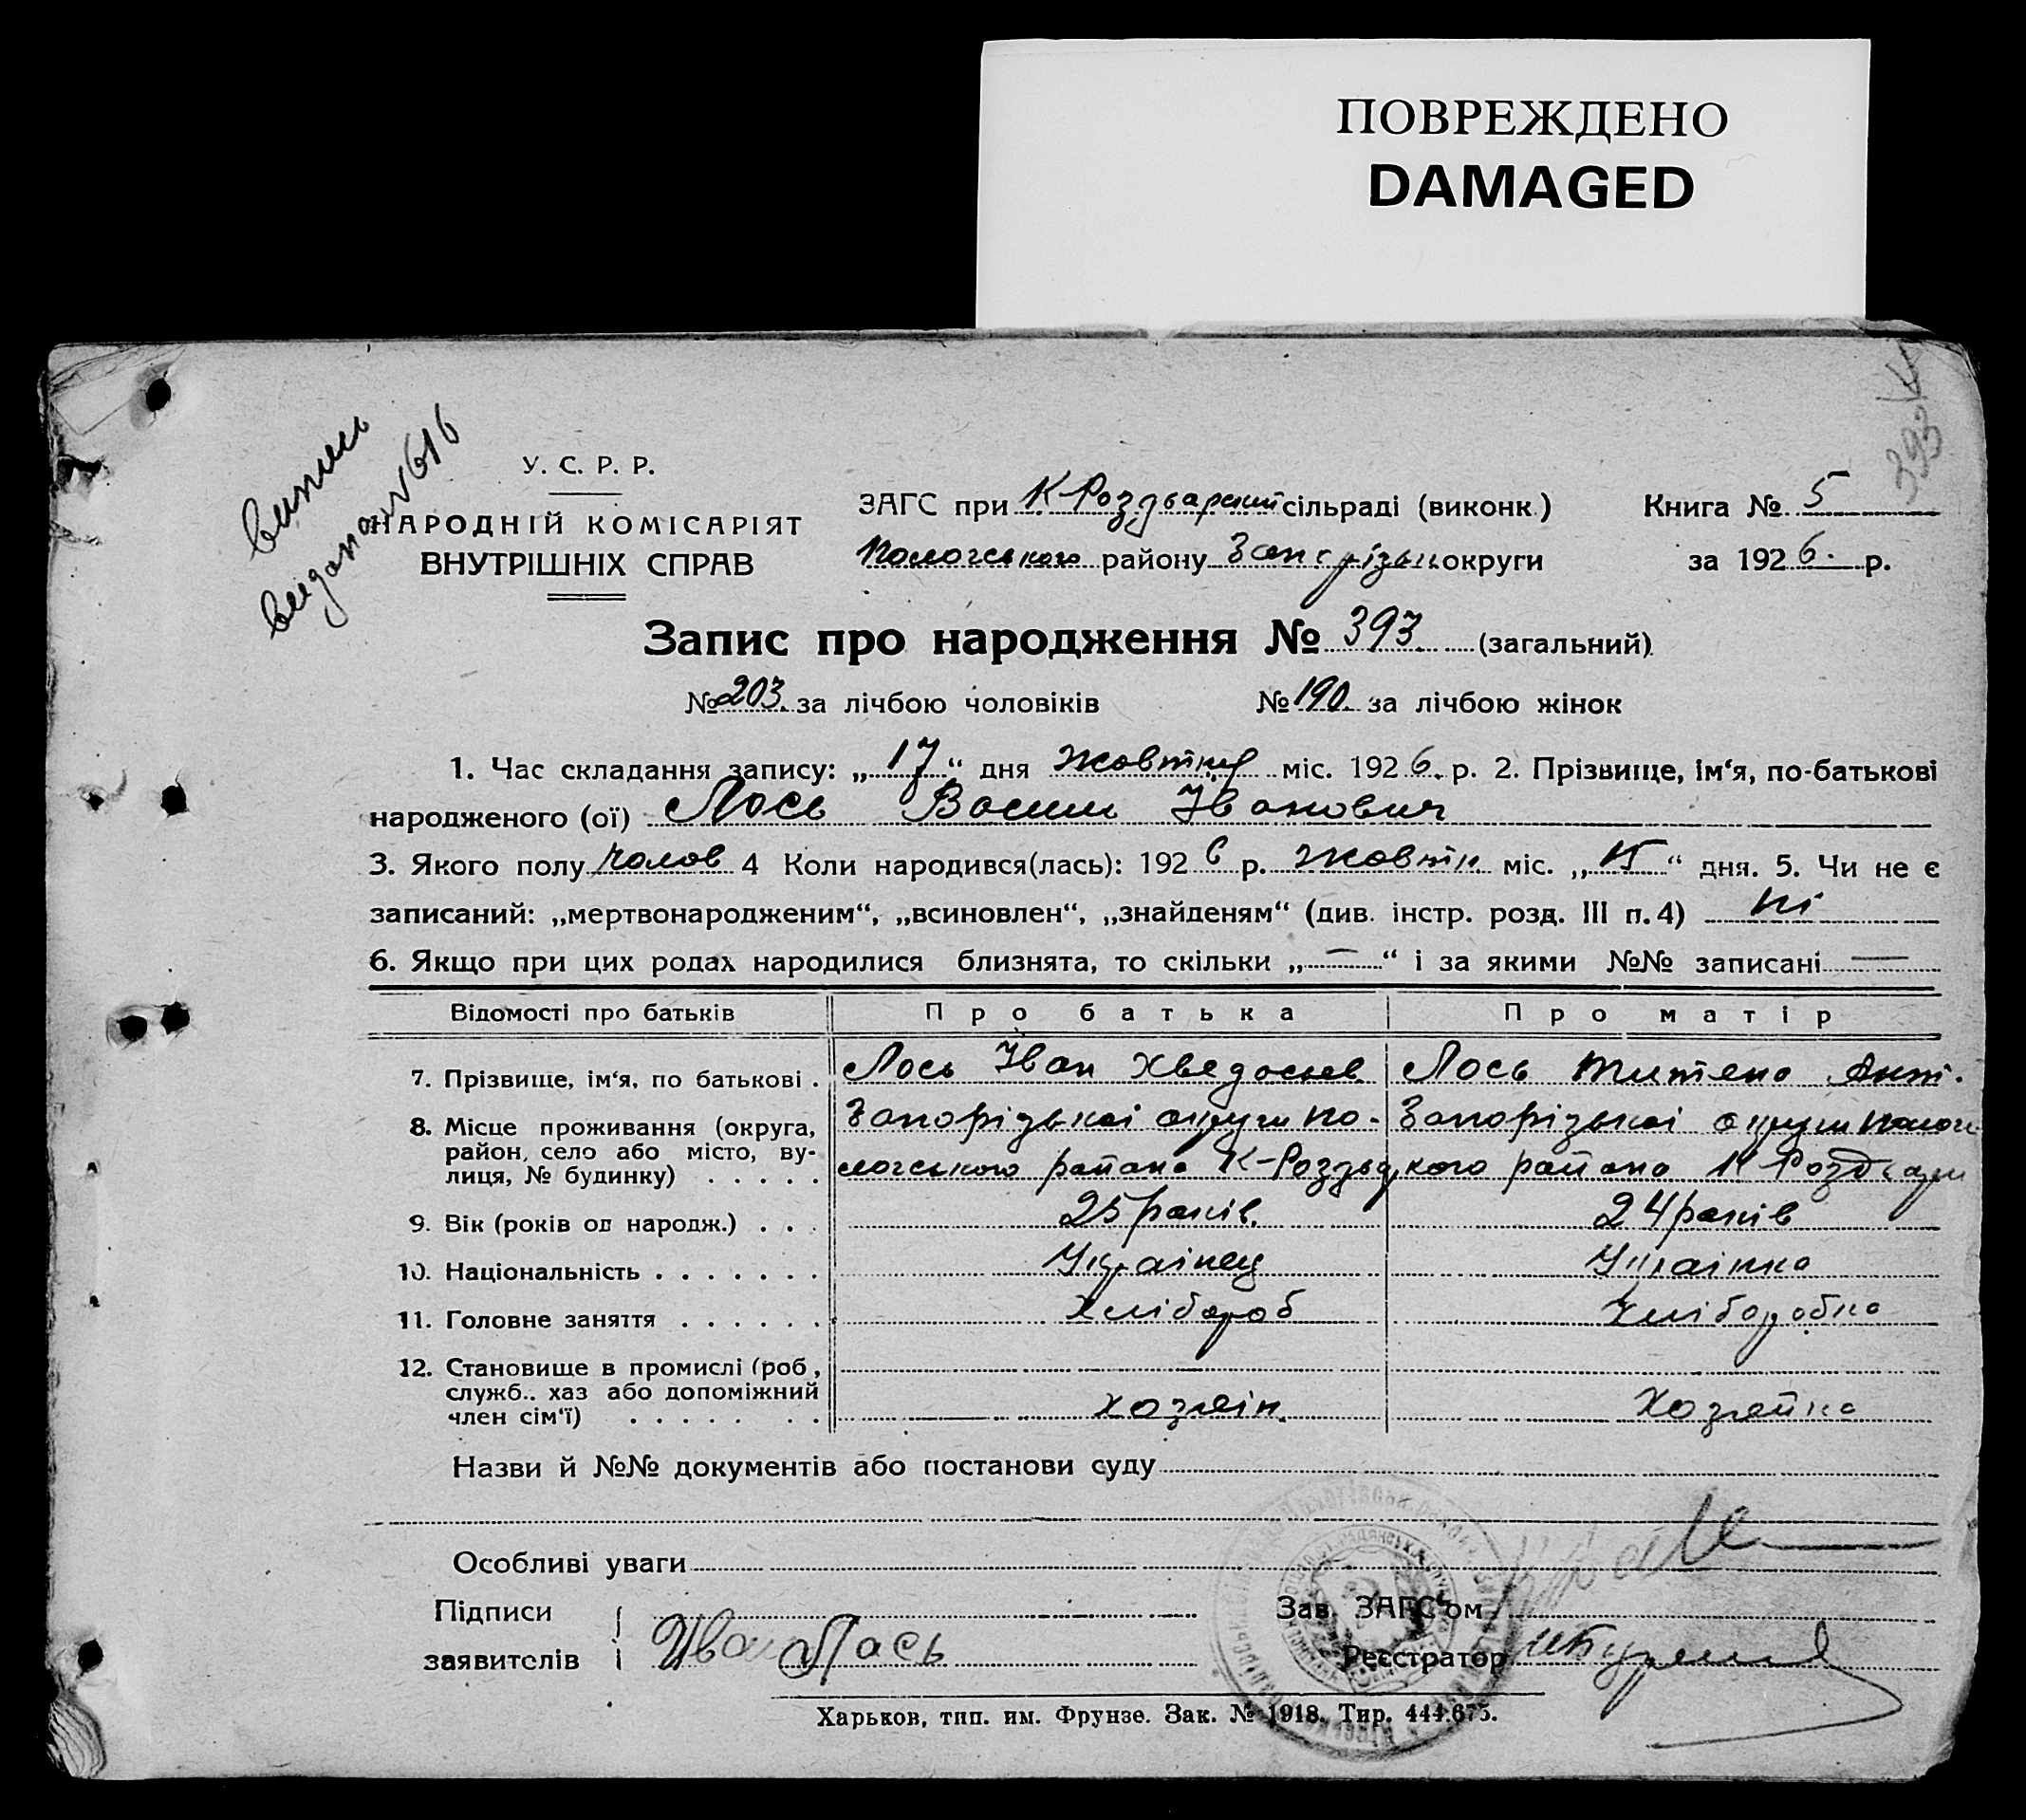 ПОВРЕЖДЕНО
DAMAGED
випись
видана № 616
393
У. С. Р. Р.
НАРОДНІЙ КОМІСАРІЯТ
ВНУТРІШНІХ СПРАВ
ЗАГС при К-Роздорский сільраді (виконк.)
Пологського району Запорізьк округи
Книга № 5
за 1926 р.
Запис про народження № 393 (загальний)
№ 203 за лічбою чоловіків № 190 за лічбою жінок
1. Час складання запису: „17“ дня жовтня міс. 1926 р. 2. Прізвище, ім‘я, по-батькові
народженого (ої) Лось Василь Іванович
3. Якого полу чолов 4 Коли народився(лась): 1926 р. жовтн міс. „15“ дня. 5. Чи не є
записаний: „мертвонародженим“, „всиновлен“, „знайденям“ (див. інстр. розд. III п. 4) ні
6. Якщо при цих родах народилися близнята, то скільки „—“ і за якими №№ записані —
Відомості про батьків Про батька Про матір
7. Прізвище, ім‘я, по батькові . Лось Іван Хведосьев Лось Антi.
8. Місце проживання (округа, Запорізької округи По- Запорізької округи Полог
район, село або місто, ву- логського района К-Розд кого района К Розд
лиця, № будинку) . . . . .
9. Вік (років од народж.) . . . 25 років 24 років
10. Національність . . . . . . . Українец Українка
11. Головне заняття . . . . . . Хлібороб Хліборобка
12. Становище в промислі (роб,
служб.. хаз або допоміжний
член сім‘ї) . . . . . . . хозяїн Хозяйка
Назви й №№ документів або постанови суду
Особливі уваги
Підписи Зав. ЗАГС‘ом
заявителів Иван Лась Реєстратор
Харьков, тип. им. Фрунзе. Зак. № 1918. Тир. 444.675.